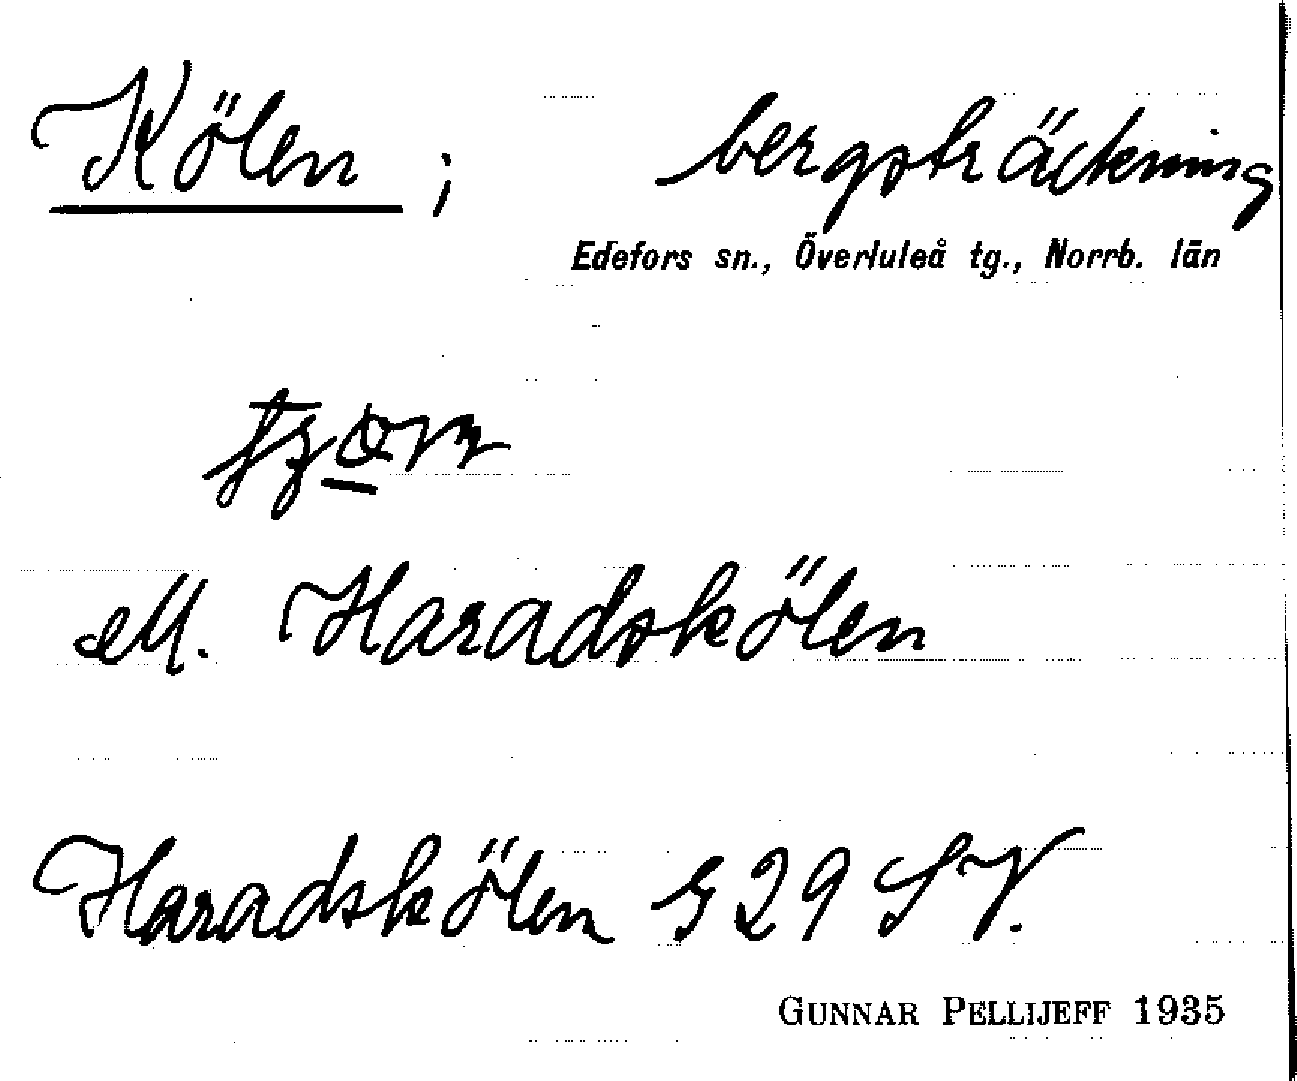 Kölen ; bergsträckning
Edefors sn., Överluleå tg., Norrb. län
ell. Haradskölen
Haradskölen S 29 SV.
GUNNAR PELLIJEFF 1935